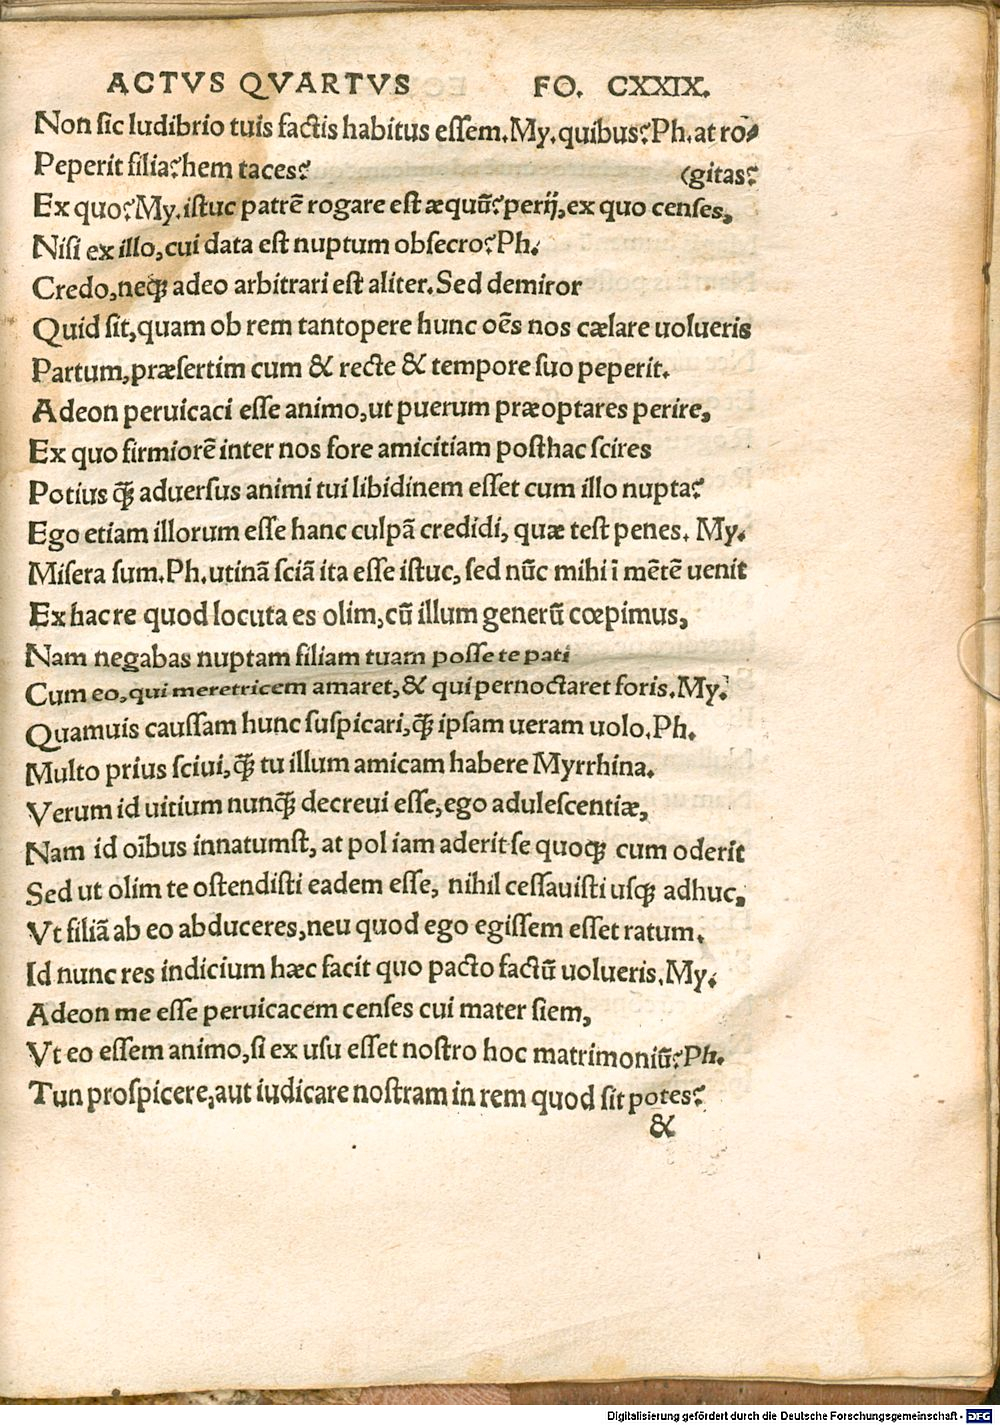 ACTVS QVARTVS FO. CXXIX.
Non sic ludibrio tuis factis habitus essem. My. quibus? Ph. at ro⸗
Peperit filia? hem taces? (gitas?
Ex quo? My. istuc patrē rogare est æquū? perij, ex quo censes,
Nisi ex illo, cui data est nuptum obsecro? Ph.
Credo, neq; adeo arbitrari est aliter. Sed demiror
Quid sit, quam ob rem tantopere hunc oēs nos cælare uolueris
Partum, præsertim cum & recte & tempore suo peperit.
Adeon peruicaci esse animo, ut puerum præoptares perire,
Ex quo firmiorē inter nos fore amicitiam posthac scires
Potius q̃ aduersus animi tui libidinem esset cum illo nupta?
Ego etiam illorum esse hanc culpā credidi, quæ test penes. My.
Misera sum. Ph. utinā sciā ita esse istuc, sed nūc mihi ī mētē uenit
Ex hac re quod locuta es olim, cū illum generū cœpimus,
Nam negabas nuptam filiam tuam posse te pati
Cum eo, qui meretricem amaret, & qui pernoctaret foris. My.
Quamuis caussam hunc suspicari, q̃ ipsam ueram uolo. Ph.
Multo prius sciui, q̃ tu illum amicam habere Myrrhina.
Verum id uitium nunq̃ decreui esse, ego adulescentiæ,
Nam id oībus innatumst, at pol iam aderit se quoq; cum oderit
Sed ut olim te ostendisti eadem esse, nihil cessauisti usq; adhuc,
Vt filiā ab eo abduceres, neu quod ego egissem esset ratum.
Id nunc res indicium hæc facit quo pacto factū uolueris. My.
Adeon me esse peruicacem censes cui mater siem,
Vt eo essem animo, si ex usu esset nostro hoc matrimoniū? Ph.
Tun prospicere, aut iudicare nostram in rem quod sit potes?
&
Digitalisierung gefördert durch die Deutsche Forschungsgemeinschaft - DFG